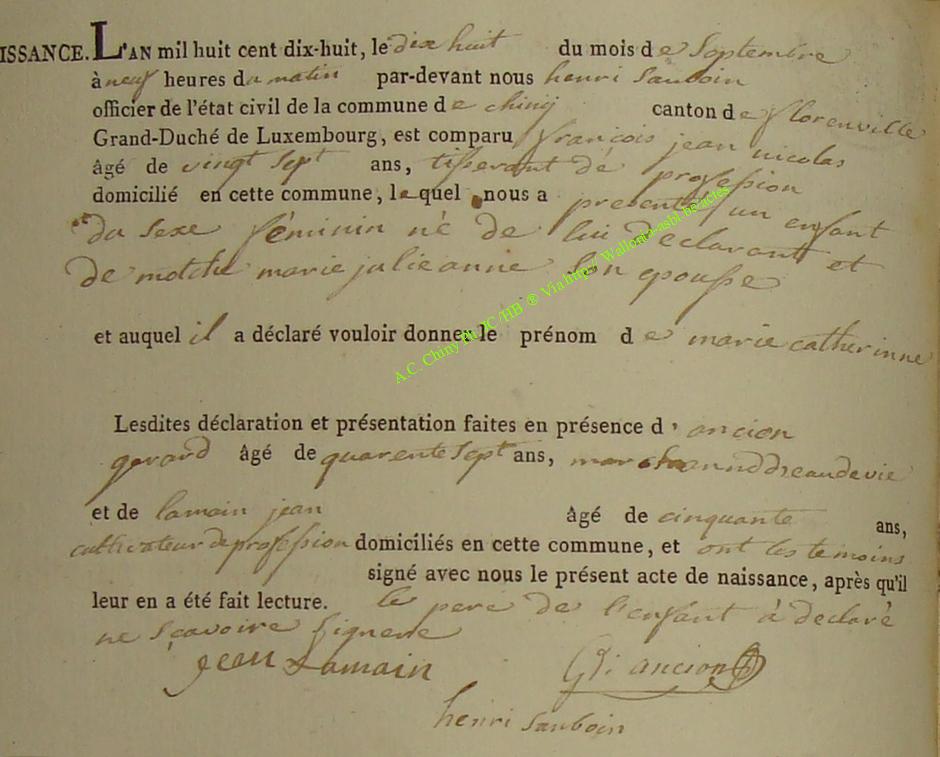 ISSANCE. L'AN mil huit cent dix-huit, le dix huit du mois de Septembre
à neuf heures du matin par-devant nous henri Sauboin
officier de l'état civil de la commune de chiny canton de florenville
Grand-Duché de Luxembourg, est comparu françois jean nicolas
âgé de vingt sept ans, tisserant de profession
domicilié en cette commune, lequel nous a presenté un enfant
du sexe féminin né de lui declarant et
de motché marie julie anne Son epousse
et auquel il a déclaré vouloir donner le prénom de marie catherinne
Lesdites déclaration et présentation faites en présence d'ancion
gerard âgé de quarente sept ans, marchannd deaudevie
et de lamain jean âgé de cinquante ans,
cultivateur de profession domiciliés en cette commune, et ont les temoins
signé avec nous le présent acte de naissance, après qu'il
leur en a été fait lecture. le pere de l'enfant à declaré
ne scavoire signere
jean Lamain Gd: ancion
henri Sauboin
A.C. Chiny